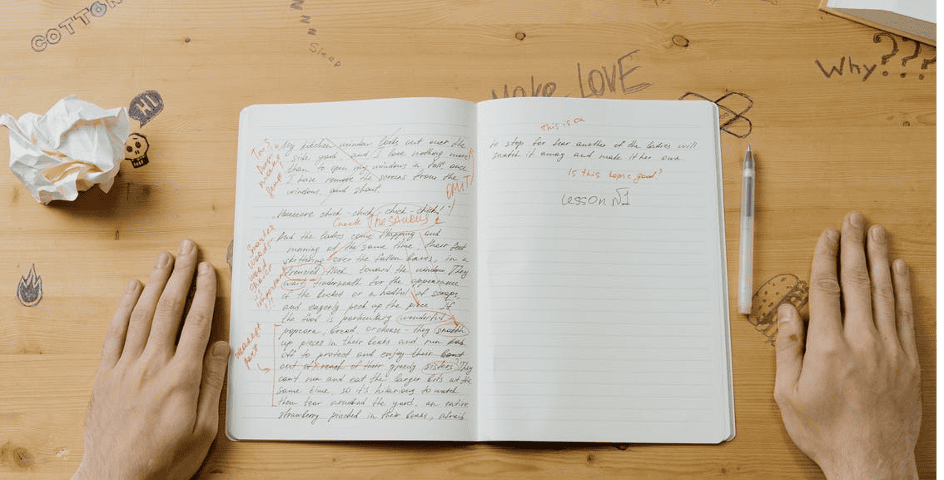 COTTON
Sleep
Make LOVE
Why???
HI
My kitchen window looks out over the
side yard and I love nothing more
than to open my window a
I have remove the screens from the
window, and shout.
chick-chick, chick-chick!
Check THESAURUS
And the ladies come flapping and
running at the same time, their feet
over the fallen leaves, in a
frenzied flock toward the window. They
wait underneath for the appearance
of the bucket or a handful of scraps
and eagerly peck up the piece. If
the food is particularly wonderful
popcorn, bread, or cheese - they snatch
up pieces in their beaks and run
off to protect and enjoy their
out of reach of their greedy sisters. They
can't run and eat the larger bits at the
same time, so it's hilarious to watch
them tear around the yard, an entire
strawberry in their beaks, afraid
OMIT!
weakest
part
this is ok
to stop for fear another of the ladies will
snatch it away and make it her own
Is this topic good?
LESSON №1